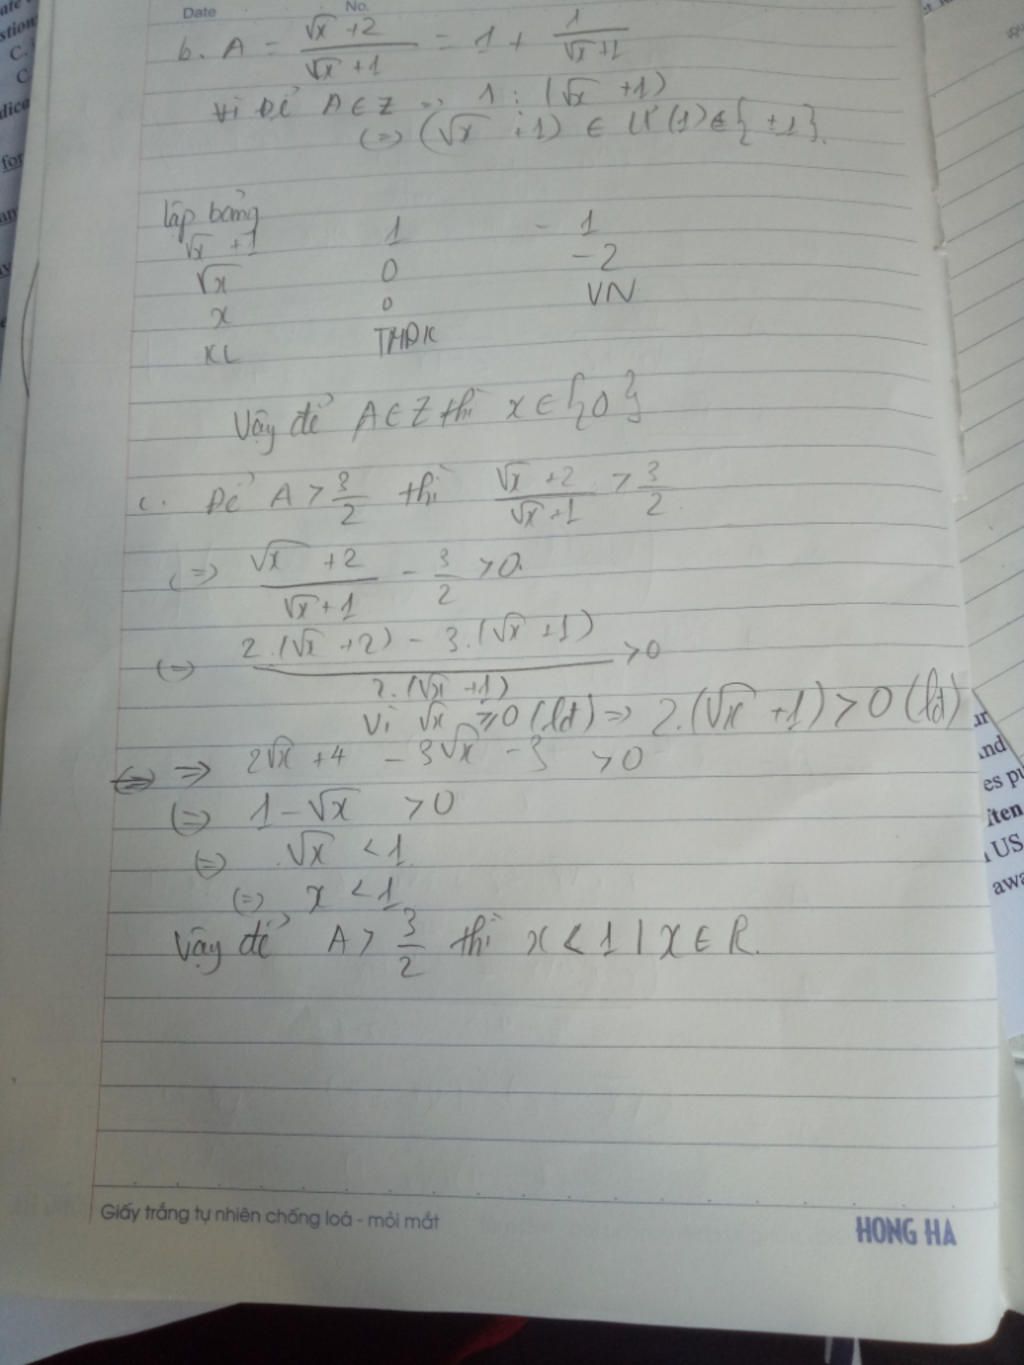 Date No.
b. A = (√x + 2)/(√x + 1) = 1 + 1/(√x + 1)
Để A ∈ Z => 1 ⋮ (√x + 1)
(=) (√x + 1) ∈ Ư(1) ∈ {±1}.
lập bảng
√x + 1 1 - 1
√x 0 - 2
x 0 VN
KL TMĐK
Vậy để A ∈ Z thì x ∈ {0}
c. Để A > 3/2 thì (√x + 2)/(√x + 1) > 3/2
(=) (√x + 2)/(√x + 1) - 3/2 > 0.
(=) (2.(√x + 2) - 3.(√x + 1))/(2.(√x + 1)) > 0
Vì √x ≥ 0 (lđ) => 2.(√x + 1) > 0 (lđ)
=> 2√x + 4 - 3√x - 3 > 0
(=) 1 - √x > 0
(=) √x < 1
(=) x < 1
Vậy để A > 3/2 thì x < 1 | x ∈ R.
Giấy trắng tự nhiên chống loá - mỏi mắt
HONG HA
for
C.
C
and
es
ften
US
awa